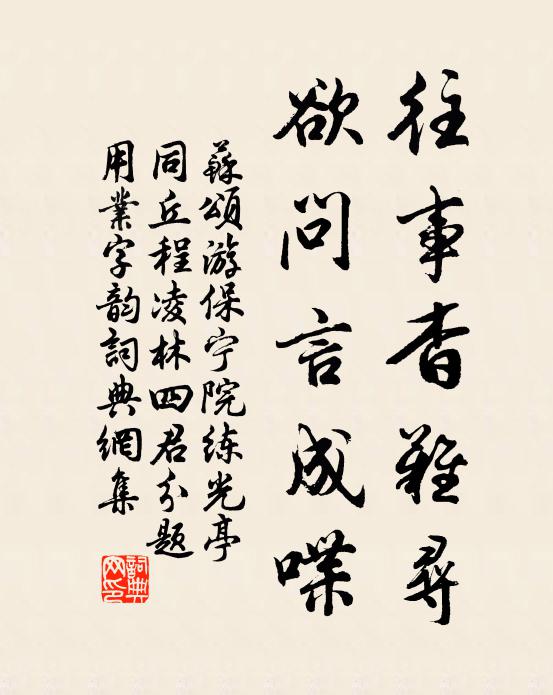 往事杳難尋
欲問言成喋
蘇頌游保宁院练光亭
同丘程凌林四君分題
用業字韵詞典網集
詞典网印